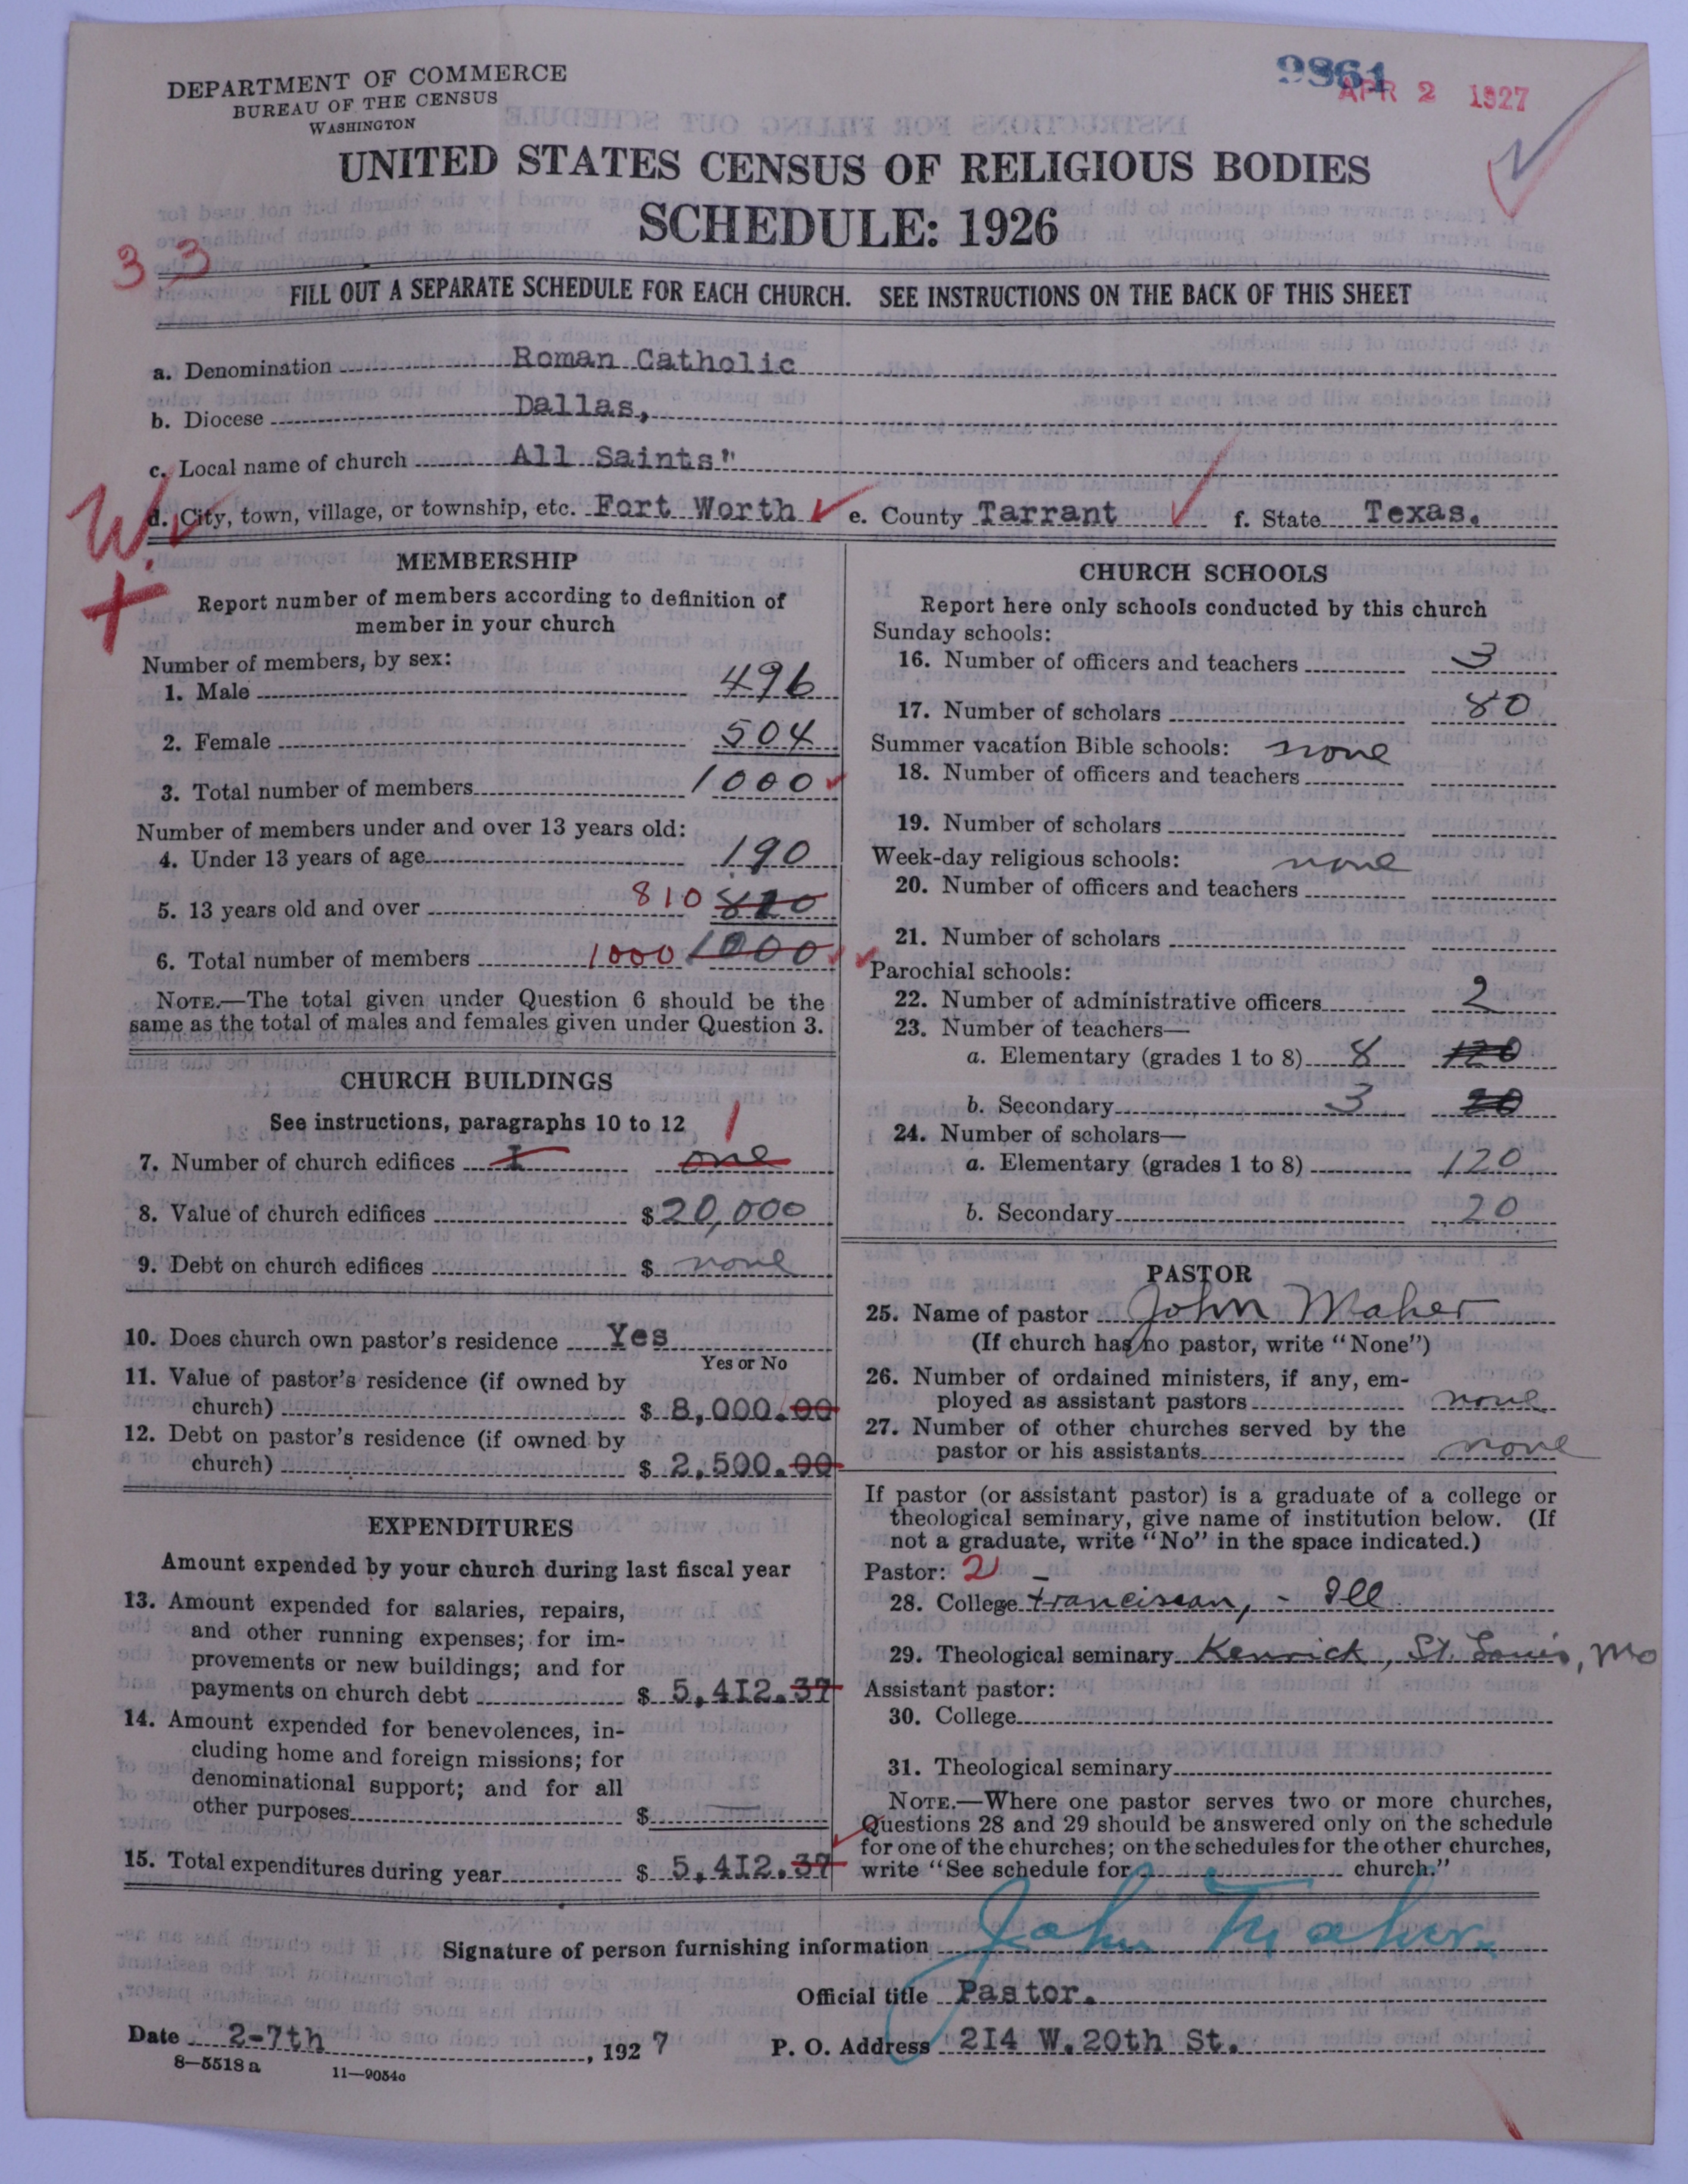 DEPARTMENT OF COMMERCE
BUREAU OF THE CENSUS
WASHINGTON
9861
APR 2 1927
UNITED STATES CENSUS OF RELIGIOUS BODIES
SCHEDULE: 1926
33
FILL OUT A SEPARATE SCHEDULE FOR EACH CHURCH. SEE INSTRUCTIONS ON THE BACK OF THIS SHEET
a. Denomination Roman Catholic
b. Diocese Dallas,
c. Local name of church All Saints"
W.
d. City, town, village, or township, etc. Fort Worth e. County Tarrant f. State Texas.
MEMBERSHIP
Report number of members according to definition of
member in your church
Number of members, by sex:
1. Male 496
2. Female 504
3. Total number of members 1000
Number of members under and over 13 years old:
4. Under 13 years of age 190
5. 13 years old and over 810
6. Total number of members 1000 1000
NOTE.—The total given under Question 6 should be the
same as the total of males and females given under Question 3.
CHURCH BUILDINGS
See instructions, paragraphs 10 to 12 1
7. Number of church edifices I one
8. Value of church edifices $ 20,000
9. Debt on church edifices $ none
10. Does church own pastor's residence Yes
Yes or No
11. Value of pastor's residence (if owned by
church) $ 8,000.00
12. Debt on pastor's residence (if owned by
church) $ 2,500.00
EXPENDITURES
Amount expended by your church during last fiscal year
13. Amount expended for salaries, repairs,
and other running expenses; for im-
provements or new buildings; and for
payments on church debt $ 5,4I2.37
14. Amount expended for benevolences, in-
cluding home and foreign missions; for
denominational support; and for all
other purposes $ —
15. Total expenditures during year $ 5,4I2.37
CHURCH SCHOOLS
Report here only schools conducted by this church
Sunday schools:
16. Number of officers and teachers 3
17. Number of scholars 80
Summer vacation Bible schools: none
18. Number of officers and teachers
19. Number of scholars
Week-day religious schools: none
20. Number of officers and teachers
21. Number of scholars
Parochial schools:
22. Number of administrative officers 2
23. Number of teachers—
a. Elementary (grades 1 to 8) 8 120
b. Secondary 3 20
24. Number of scholars—
a. Elementary (grades 1 to 8) 120
b. Secondary 20
PASTOR
25. Name of pastor John Maher
(If church has no pastor, write "None")
26. Number of ordained ministers, if any, em-
ployed as assistant pastors none
27. Number of other churches served by the
pastor or his assistants none
If pastor (or assistant pastor) is a graduate of a college or
theological seminary, give name of institution below. (If
not a graduate, write "No" in the space indicated.)
Pastor: 2
28. College Franciscan, - Ill
29. Theological seminary Kenrick, St. Louis, Mo
Assistant pastor:
30. College
31. Theological seminary
NOTE.—Where one pastor serves two or more churches,
Questions 28 and 29 should be answered only on the schedule
for one of the churches; on the schedules for the other churches,
write "See schedule for church."
Signature of person furnishing information John Maher
Official title Pastor.
Date 2-7th, 1927
P. O. Address 2I4 W. 20th St.
8—5518 a 11—9054o